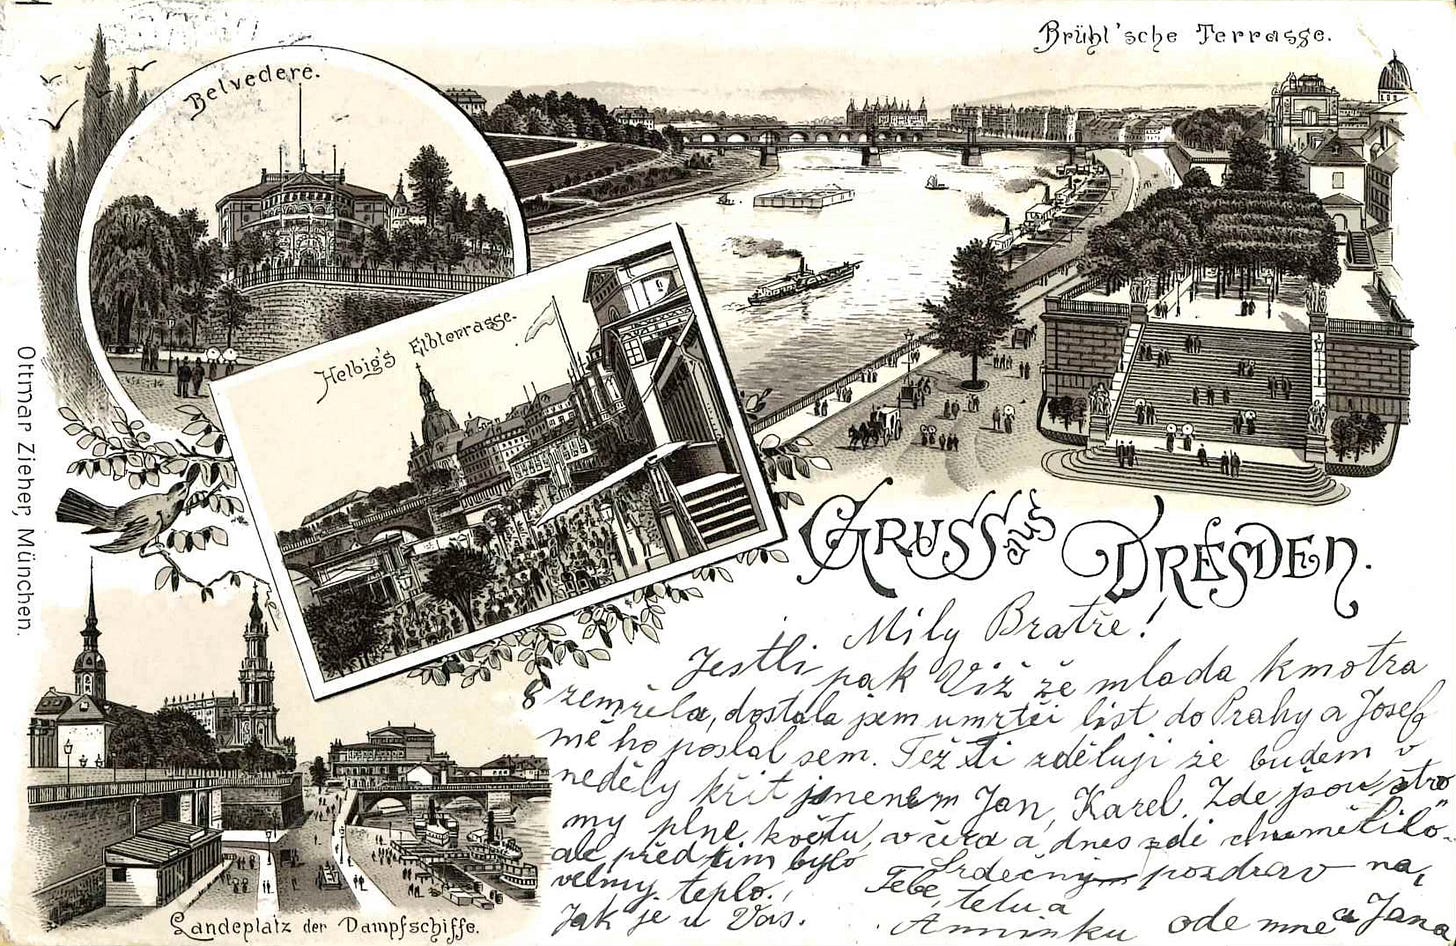 Brühl'sche Terrasse.
Belvedere.
Helbig's Elbterrasse.
Ottmar Zieher, München.
GRUSS aus DRESDEN.
Landeplatz der Dampfschiffe.
Milý Bratře!
Jestli pak Viž že mlada kmotra
zemřela, dostala jsem umrtči list do Prahy a Josef
mě ho poslal sem. Tež ti zděluji že budem v
neděly křit jmenem Jan, Karel. Zde jsou stro
my plne květu, včera a dnes zde chumělilo
ale před tim bylo
velmy teplo.
Jak je u Vás.
Srdečný pozdrav na
Tebe, tetu a
Anninku ode mne a Jana